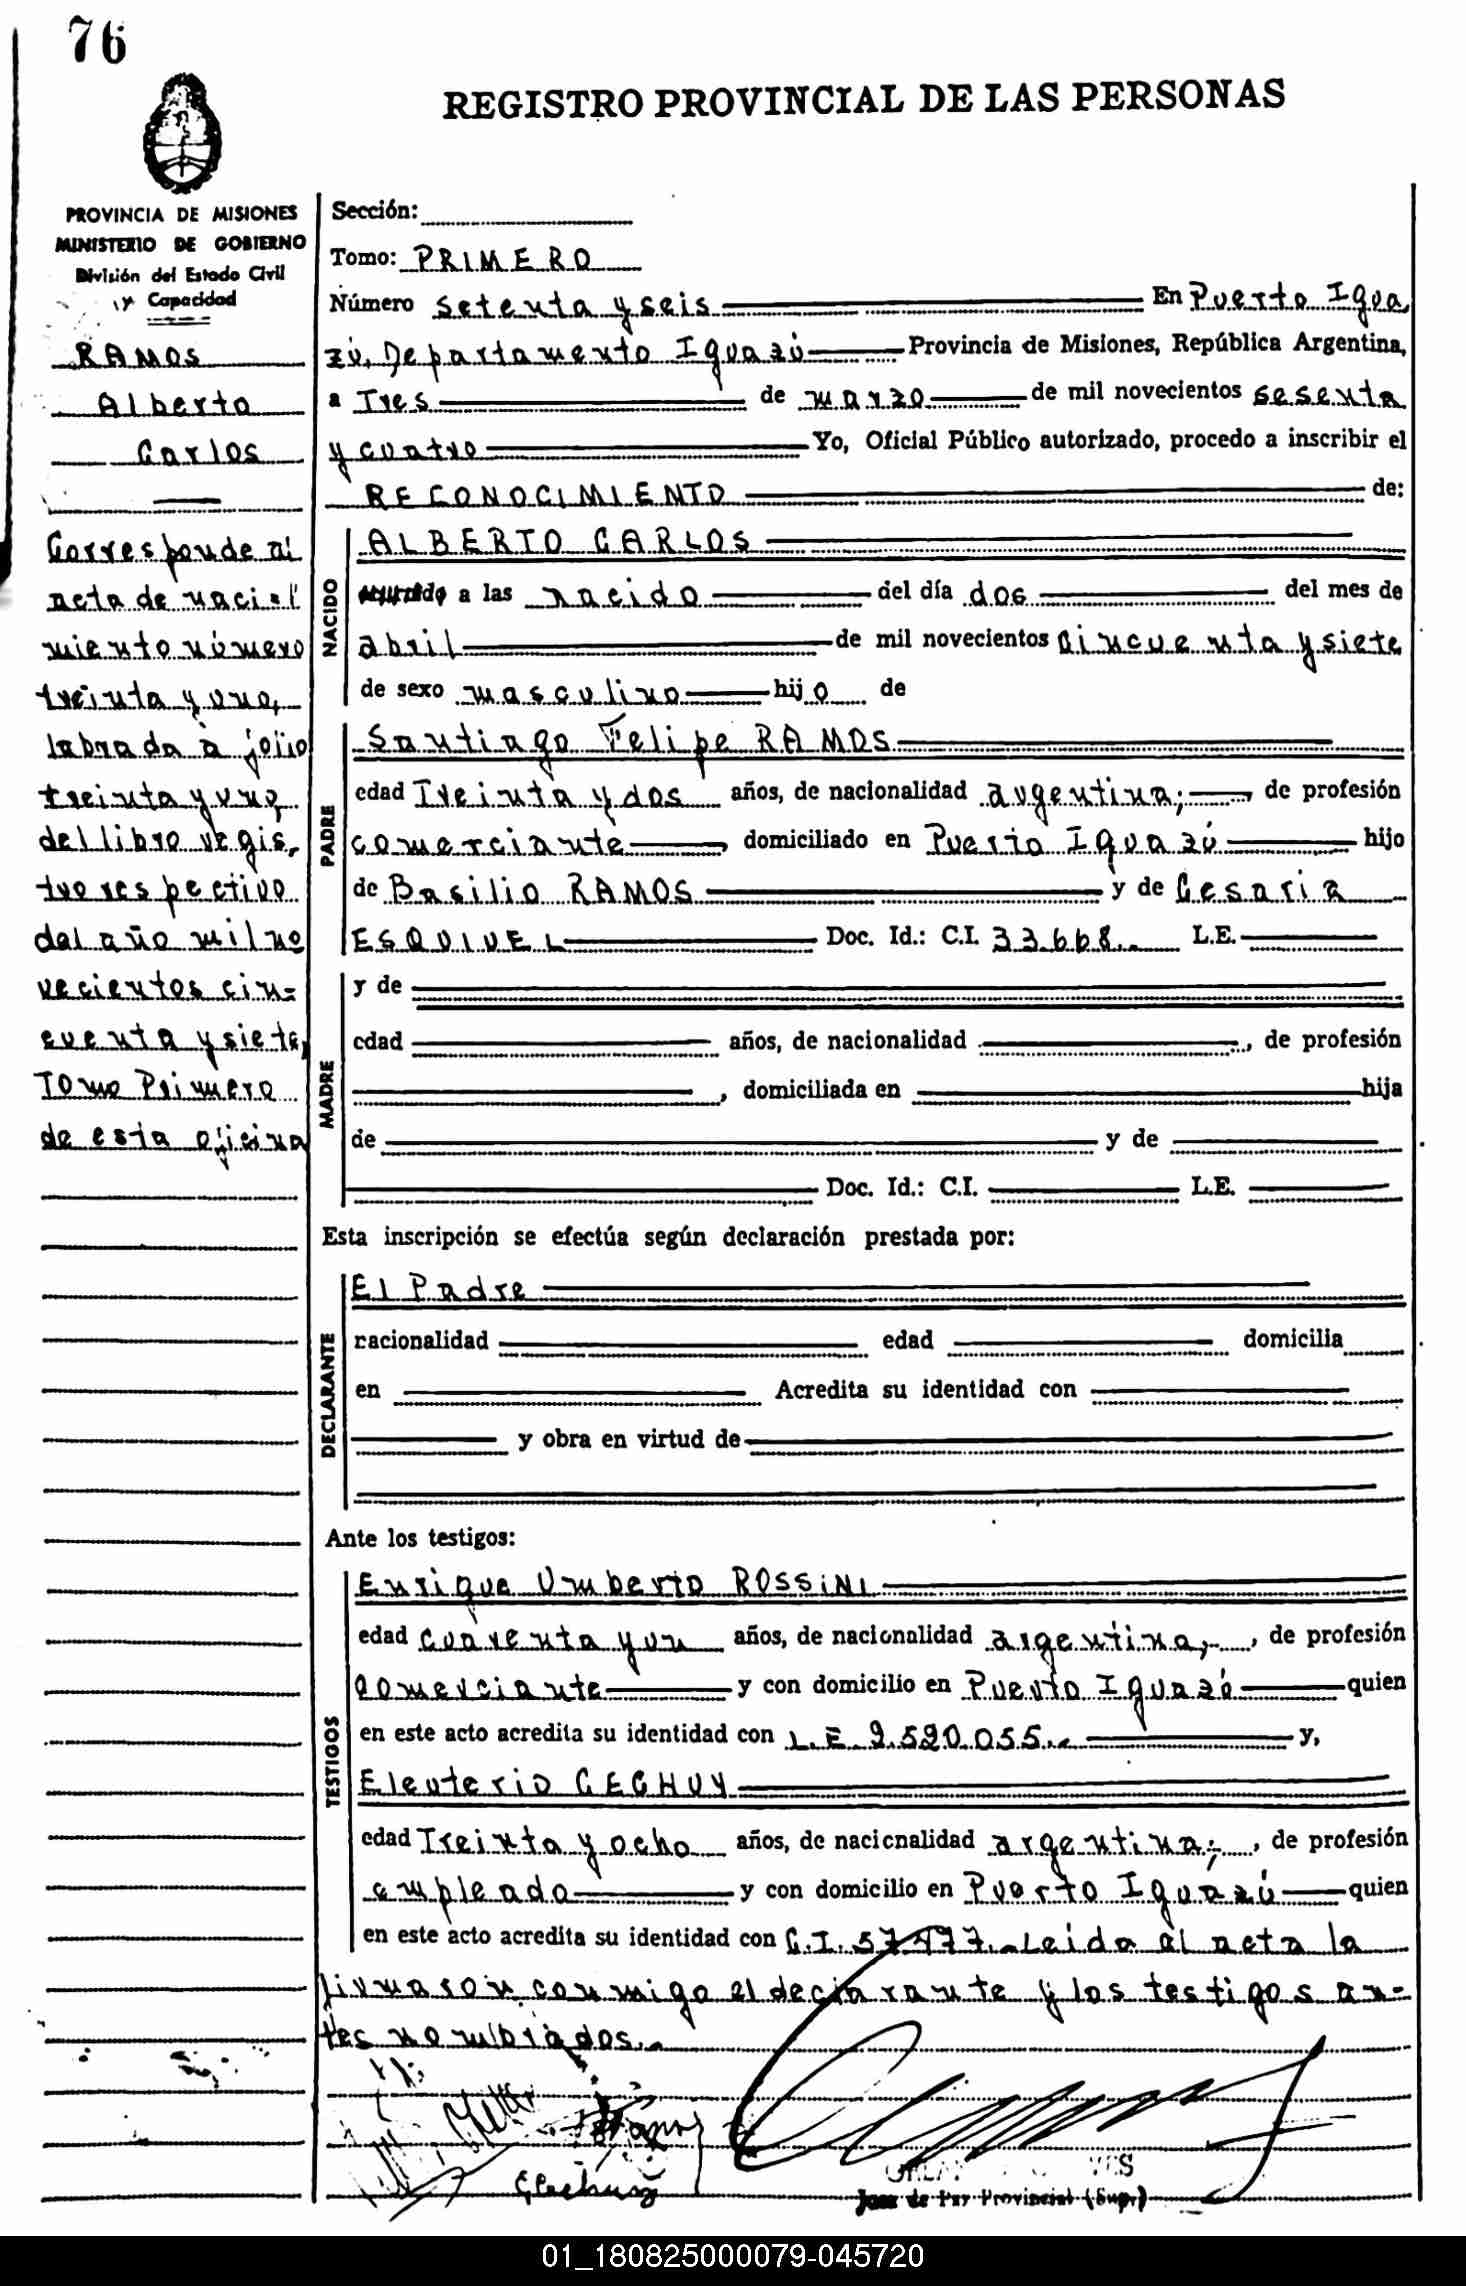 76
REGISTRO PROVINCIAL DE LAS PERSONAS
PROVINCIA DE MISIONES
MINISTERIO DE GOBIERNO
División del Estado Civil
y Capacidad
RAMOS
Alberto
Carlos
Corresponde al
acta de naci=
miento número
treinta y uno,
labrada a folio
treinta y uno,
del libro regis,
tro respectivo
del año mil no
vecientos cin=
cuenta y siete,
Tomo Primero
de esta oficina
Sección:
Tomo: PRIMERO
Número setenta y seis En Puerto Igua
zú, Departamento Iguazú Provincia de Misiones, República Argentina,
a Tres de marzo de mil novecientos sesenta
y cuatro Yo, Oficial Público autorizado, procedo a inscribir el
RECONOCIMIENTO de:
NACIDO
ALBERTO CARLOS
a las nacido del día dos del mes de
abril de mil novecientos cincuenta y siete
de sexo masculino hijo de
PADRE
Santiago Felipe RAMOS
edad Treinta y dos años, de nacionalidad argentina; de profesión
comerciante domiciliado en Puerto Iguazú hijo
de Basilio RAMOS y de Cesaria
ESQUIVEL Doc. Id.: C.I. 33.668.- L.E.
MADRE
y de
edad años, de nacionalidad , de profesión
, domiciliada en hija
de y de
Doc. Id.: C.I. L.E.
Esta inscripción se efectúa según declaración prestada por:
DECLARANTE
El Padre
nacionalidad edad domicilia
en Acredita su identidad con
y obra en virtud de
Ante los testigos:
TESTIGOS
Enrique Umberto ROSSINI
edad cuarenta y un años, de nacionalidad argentina,- , de profesión
comerciante y con domicilio en Puerto Iguazú quien
en este acto acredita su identidad con L.E. 2.520.055.- y,
Eleuterio CECHUY
edad Treinta y ocho años, de nacionalidad argentina;- , de profesión
empleado y con domicilio en Puerto Iguazú quien
en este acto acredita su identidad con C.I. 57.477.- Leída al acta la
firmaron conmigo el declarante y los testigos an=
tes nombrados.-
Juez de Paz Provincial (Sup.)
01_180825000079-045720